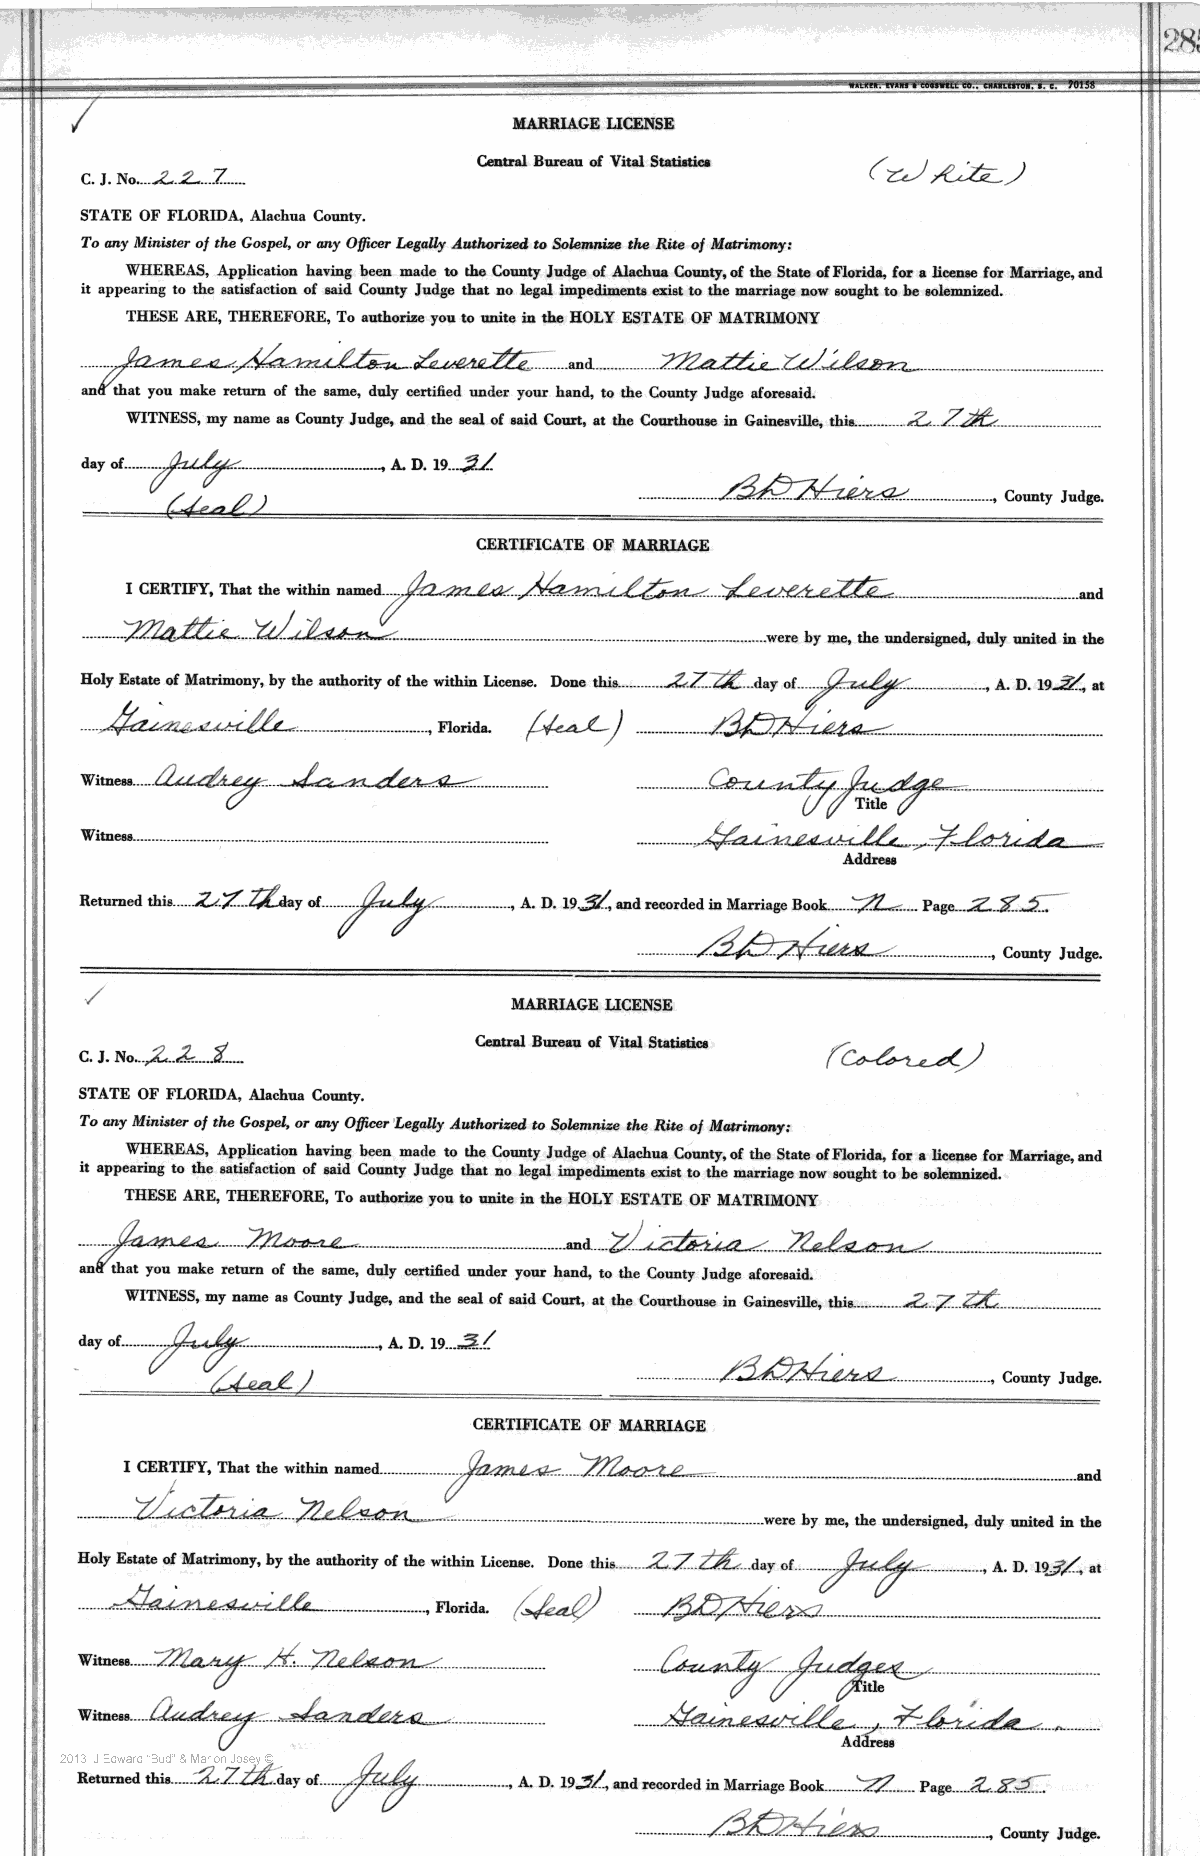 285
WALKER, EVANS & COGSWELL CO., CHARLESTON, S. C. 70158
MARRIAGE LICENSE
Central Bureau of Vital Statistics
(White)
C. J. No. 227
STATE OF FLORIDA, Alachua County.
To any Minister of the Gospel, or any Officer Legally Authorized to Solemnize the Rite of Matrimony:
WHEREAS, Application having been made to the County Judge of Alachua County, of the State of Florida, for a license for Marriage, and
it appearing to the satisfaction of said County Judge that no legal impediments exist to the marriage now sought to be solemnized.
THESE ARE, THEREFORE, To authorize you to unite in the HOLY ESTATE OF MATRIMONY
James Hamilton Leverette and Mattie Wilson
and that you make return of the same, duly certified under your hand, to the County Judge aforesaid.
WITNESS, my name as County Judge, and the seal of said Court, at the Courthouse in Gainesville, this 27th
day of July, A. D. 19 31
(Seal) BD Hiers, County Judge.
CERTIFICATE OF MARRIAGE
I CERTIFY, That the within named James Hamilton Leverette and
Mattie Wilson were by me, the undersigned, duly united in the
Holy Estate of Matrimony, by the authority of the within License. Done this 27th day of July, A. D. 19 31, at
Gainesville, Florida. (Seal) BD Hiers
Witness Audrey Sanders County Judge
Title
Witness Gainesville, Florida
Address
Returned this 27th day of July, A. D. 19 31, and recorded in Marriage Book N Page 285.
BD Hiers, County Judge.
MARRIAGE LICENSE
Central Bureau of Vital Statistics
(Colored)
C. J. No. 228
STATE OF FLORIDA, Alachua County.
To any Minister of the Gospel, or any Officer Legally Authorized to Solemnize the Rite of Matrimony:
WHEREAS, Application having been made to the County Judge of Alachua County, of the State of Florida, for a license for Marriage, and
it appearing to the satisfaction of said County Judge that no legal impediments exist to the marriage now sought to be solemnized.
THESE ARE, THEREFORE, To authorize you to unite in the HOLY ESTATE OF MATRIMONY
James Moore and Victoria Nelson
and that you make return of the same, duly certified under your hand, to the County Judge aforesaid.
WITNESS, my name as County Judge, and the seal of said Court, at the Courthouse in Gainesville, this 27th
day of July, A. D. 19 31
(Seal) BD Hiers, County Judge.
CERTIFICATE OF MARRIAGE
I CERTIFY, That the within named James Moore and
Victoria Nelson were by me, the undersigned, duly united in the
Holy Estate of Matrimony, by the authority of the within License. Done this 27th day of July, A. D. 19 31, at
Gainesville, Florida. (Seal) BD Hiers
Witness Mary H. Nelson County Judges
Title
Witness Audrey Sanders Gainesville, Florida.
Address
2013 J Edward "Bud" & Marion Josey ©
Returned this 27th day of July, A. D. 19 31, and recorded in Marriage Book N Page 285.
BD Hiers, County Judge.